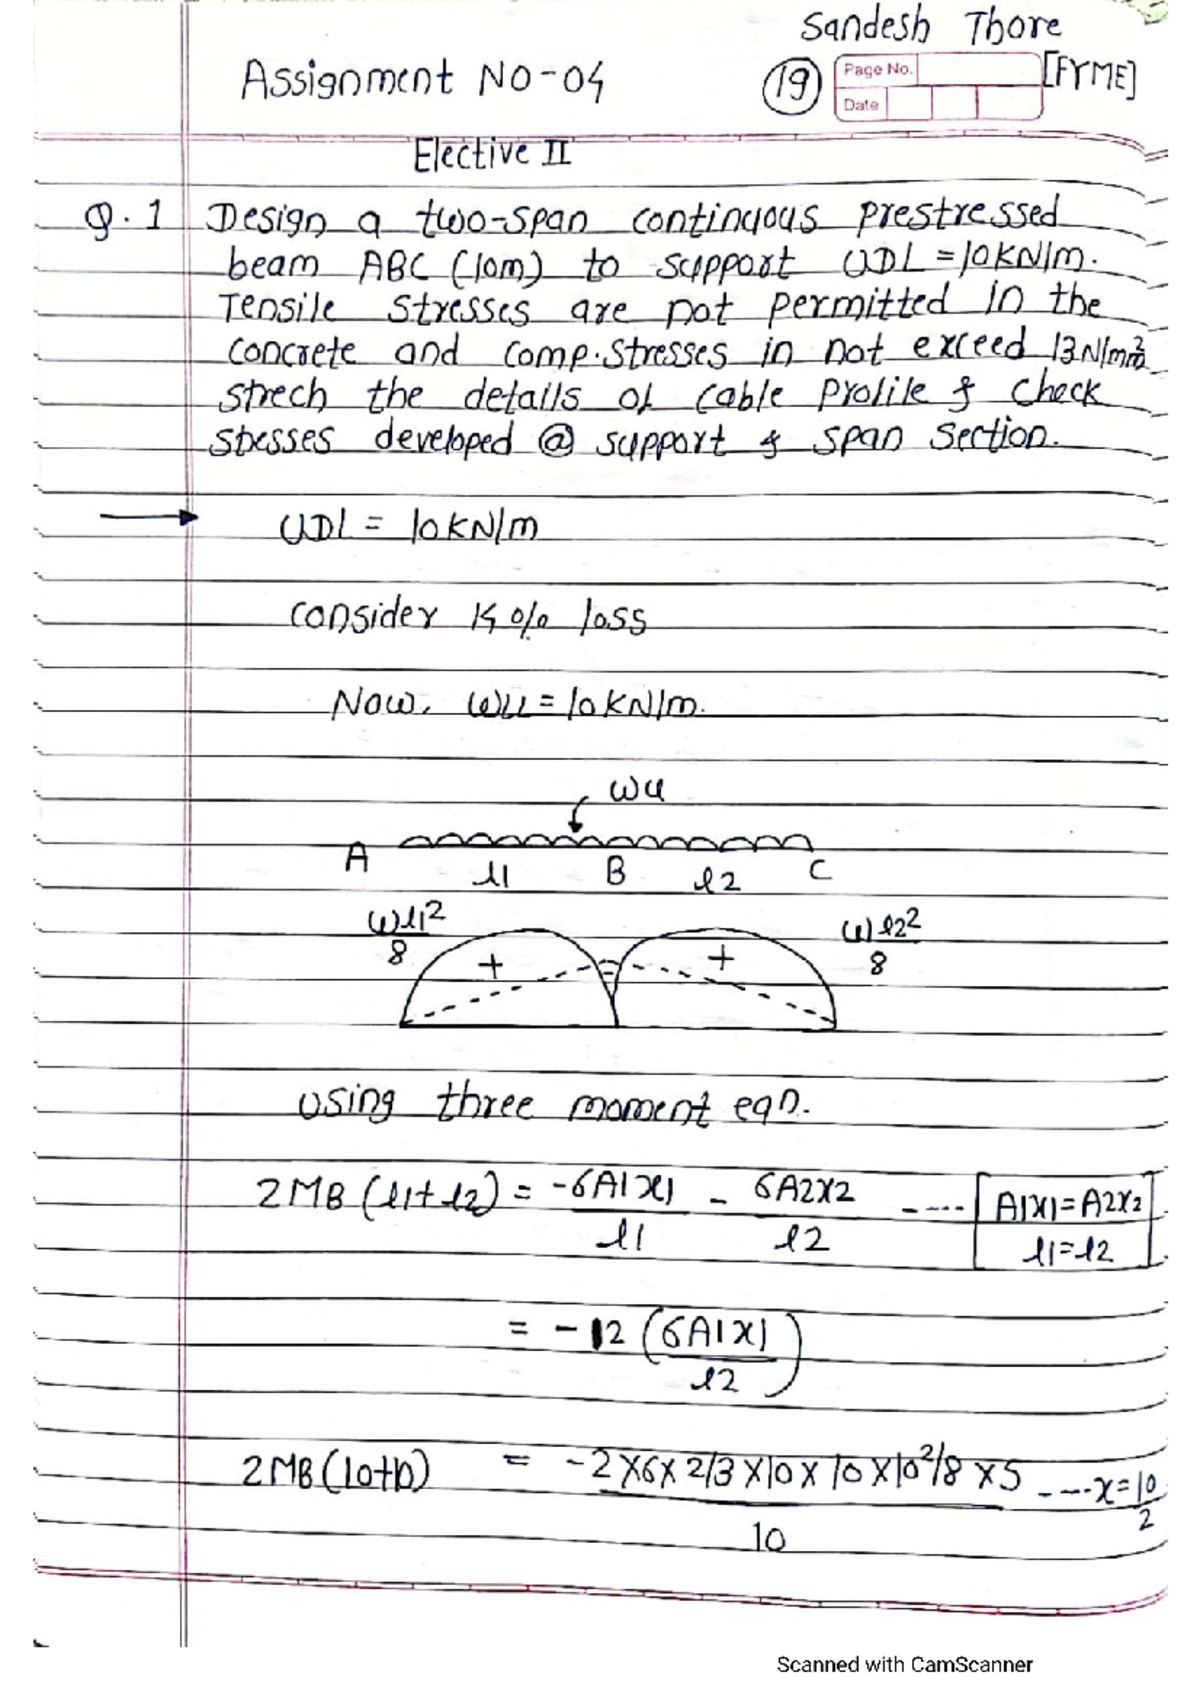 Sandesh Thore
Assignment NO-04
19
Page No.
[FYME]
Date
Elective II
Q.1 Design a two-span continuous prestressed
beam ABC (10m) to support UDL = 10KN/m.
Tensile stresses are not permitted in the
concrete and comp. stresses in not exceed 13N/mm²
strech the details of cable profile & check
stresses developed @ support & span section.
→ UDL = 10KN/m
consider 15% loss
Now, wu = 10KN/m.
wu
A l1 B l2 C
wl1²/8 + - + wl2²/8
using three moment eqn.
2MB (l1+l2) = -6A1x1/l1 - 6A2x2/l2 ---- [A1x1=A2x2
l1=l2]
= -2 (6A1x1/l2)
2MB(10+10) = -2x6x2/3x10x10x10²/8x5/10 ----x=10/2
Scanned with CamScanner